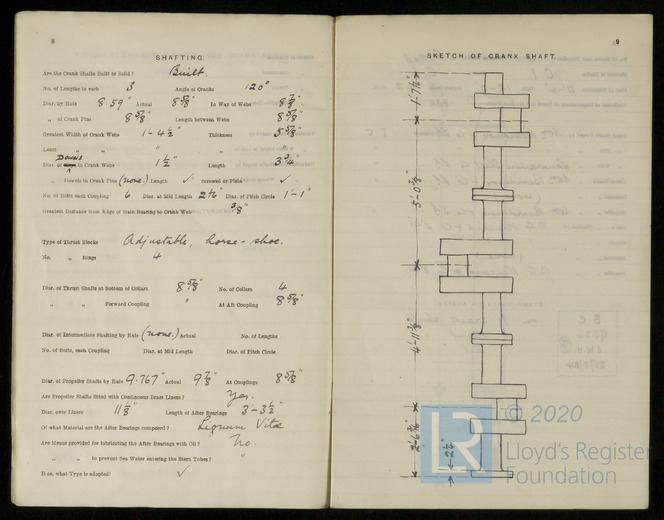 8
SHAFTING.
Are the Crank Shafts Built or Solid? Built.
No. of Lengths in each 3 Angle of Cranks 120°
Diar. by Rule 8.59" Actual 8 5/8" In Way of Webs 8 7/8"
„ of Crank Pins 8 5/8" Length between Webs 8 5/8"
Greatest Width of Crank Webs 1'-4 1/2" Thickness 5 5/8"
Least „ „ „ „
Diar. of Dowels in Crank Webs 1 1/2" Length 3 3/4"
„ Dowels in Crank Pins (none.) Length ✓ Screwed or Plain ✓
No. of Bolts each Coupling 6 Diar. at Mid Length Diar. of Pitch Circle 1'-1"
Greatest Distance from Edge of Main Bearing to Crank Web 3/8"
Type of Thrust Blocks Adjustable, horse-shoe.
No. „ Rings 4
Diar. of Thrust Shafts at bottom of Collars 8 5/8" No. of Collars 4
„ „ Forward Coupling „ At Aft Coupling 8 5/8"
Diar. of Intermediate Shafting by Rule (none.) Actual No. of Lengths
No. of Bolts, each Coupling Diar. at Mid Length Diar. of Pitch Circle
Diar. of Propeller Shafts by Rule 9.767" Actual 9 7/8" At Couplings 8 5/8"
Are Propeller Shafts fitted with Continuous Brass Liners? Yes.
Diar. over Liners 11 1/8" Length of After Bearings 3'-3 1/2"
Of what Material are the After Bearings composed? Lignum Vitæ
Are Means provided for lubricating the After Bearings with Oil? No.
„ „ to prevent Sea Water entering the Stern Tubes? "
If so, what Type is adopted? ✓
9
SKETCH OF CRANK SHAFT.
5'-0 3/8"
© 2020
LR
Lloyd's Register
Foundation